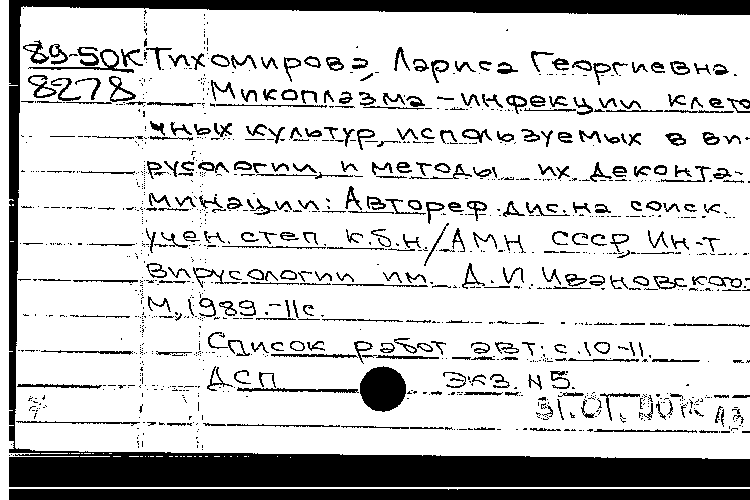 89-50К Тихомирова, Лариса Георгиевна.
8278 Микоплазма-инфекции клето
чных культур, используемых в ви-
русологии, и методы их деконта-
минации: Автореф. дис. на соиск.
учен. степ. к.б.н/АМН СССР, Ин-т
вирусологии им. Д.И. Ивановского.
М, 1989.-11с.
Список работ авт: с. 10-11.
ДСП Экз. N 5.
31.01.